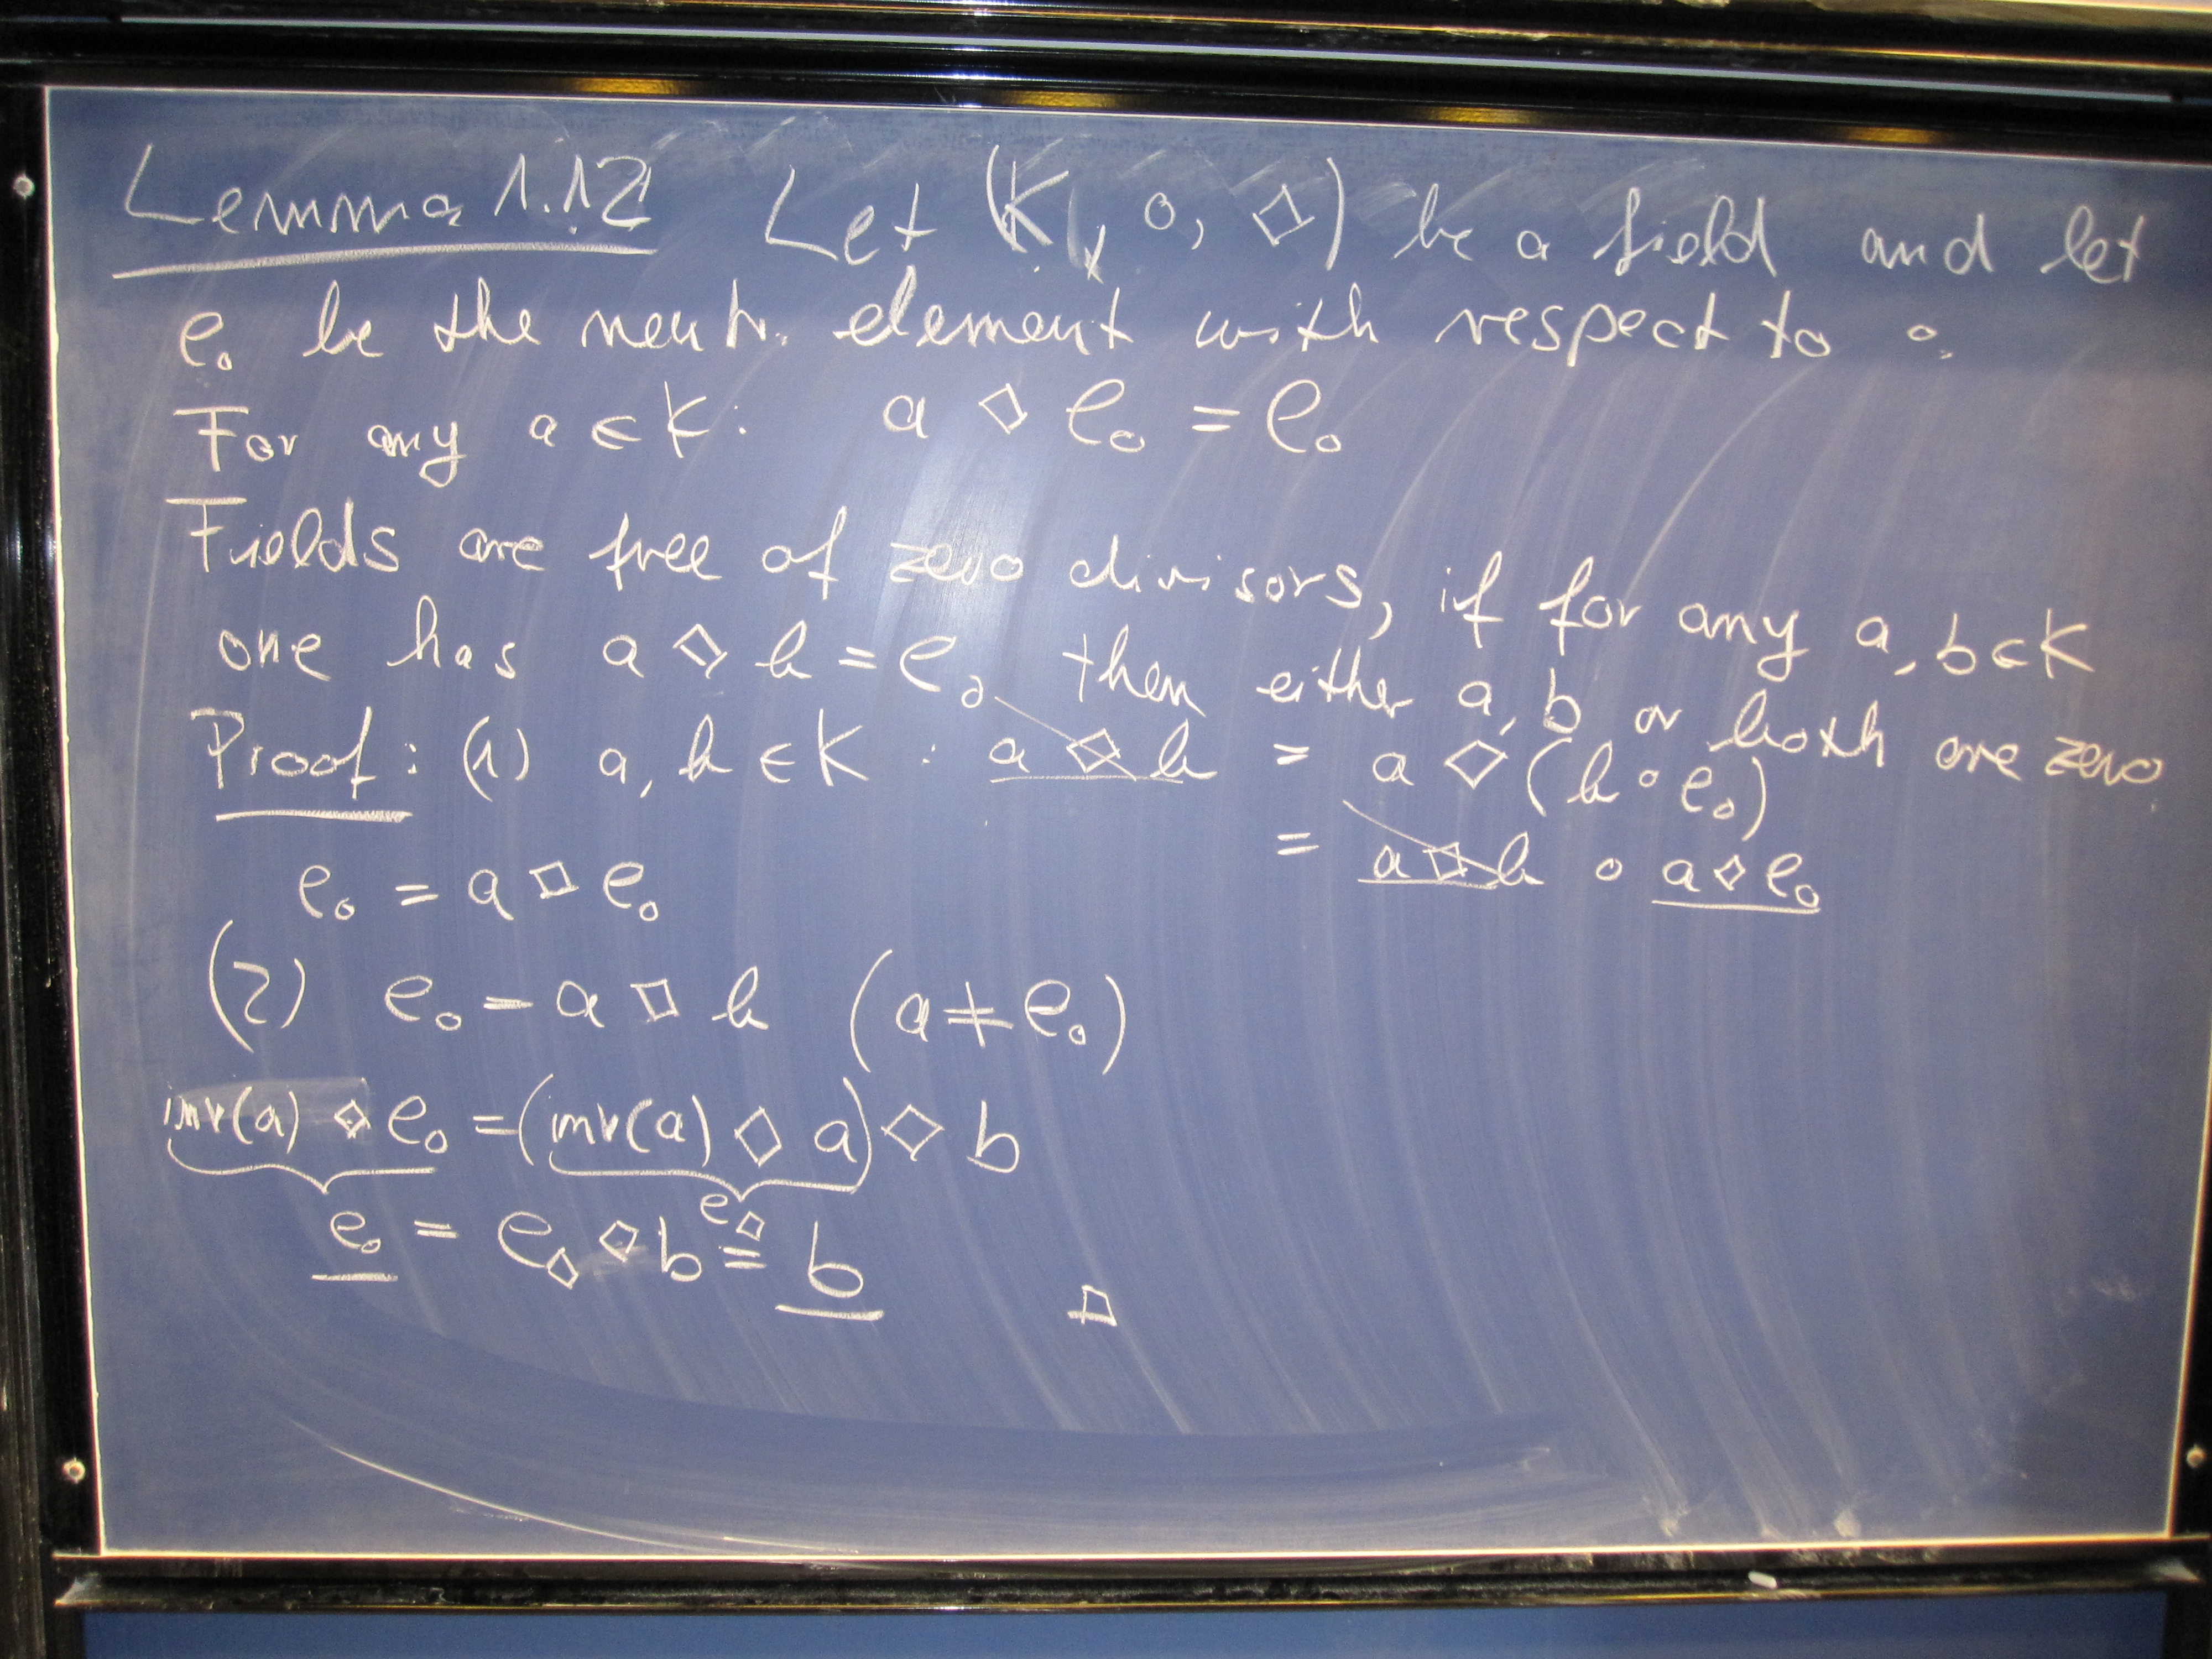 Lemma 1.12 Let (K, ∘, ◇) be a field and let
e∘ be the neutr. element with respect to ∘.
For any a ∈ K: a ◇ e∘ = e∘
Fields are free of zero divisors, if for any a, b ∈ K
one has a ◇ b = e∘ then either a, b or both are zero.
Proof: (1) a, b ∈ K : a ◇ b = a ◇ (b ∘ e∘)
= a ◇ b ∘ a ◇ e∘
e∘ = a ◇ e∘
(2) e∘ = a ◇ b (a ≠ e∘)
inv(a) ◇ e∘ = (inv(a) ◇ a) ◇ b
e◇
e∘ = e◇ ◇ b = b □